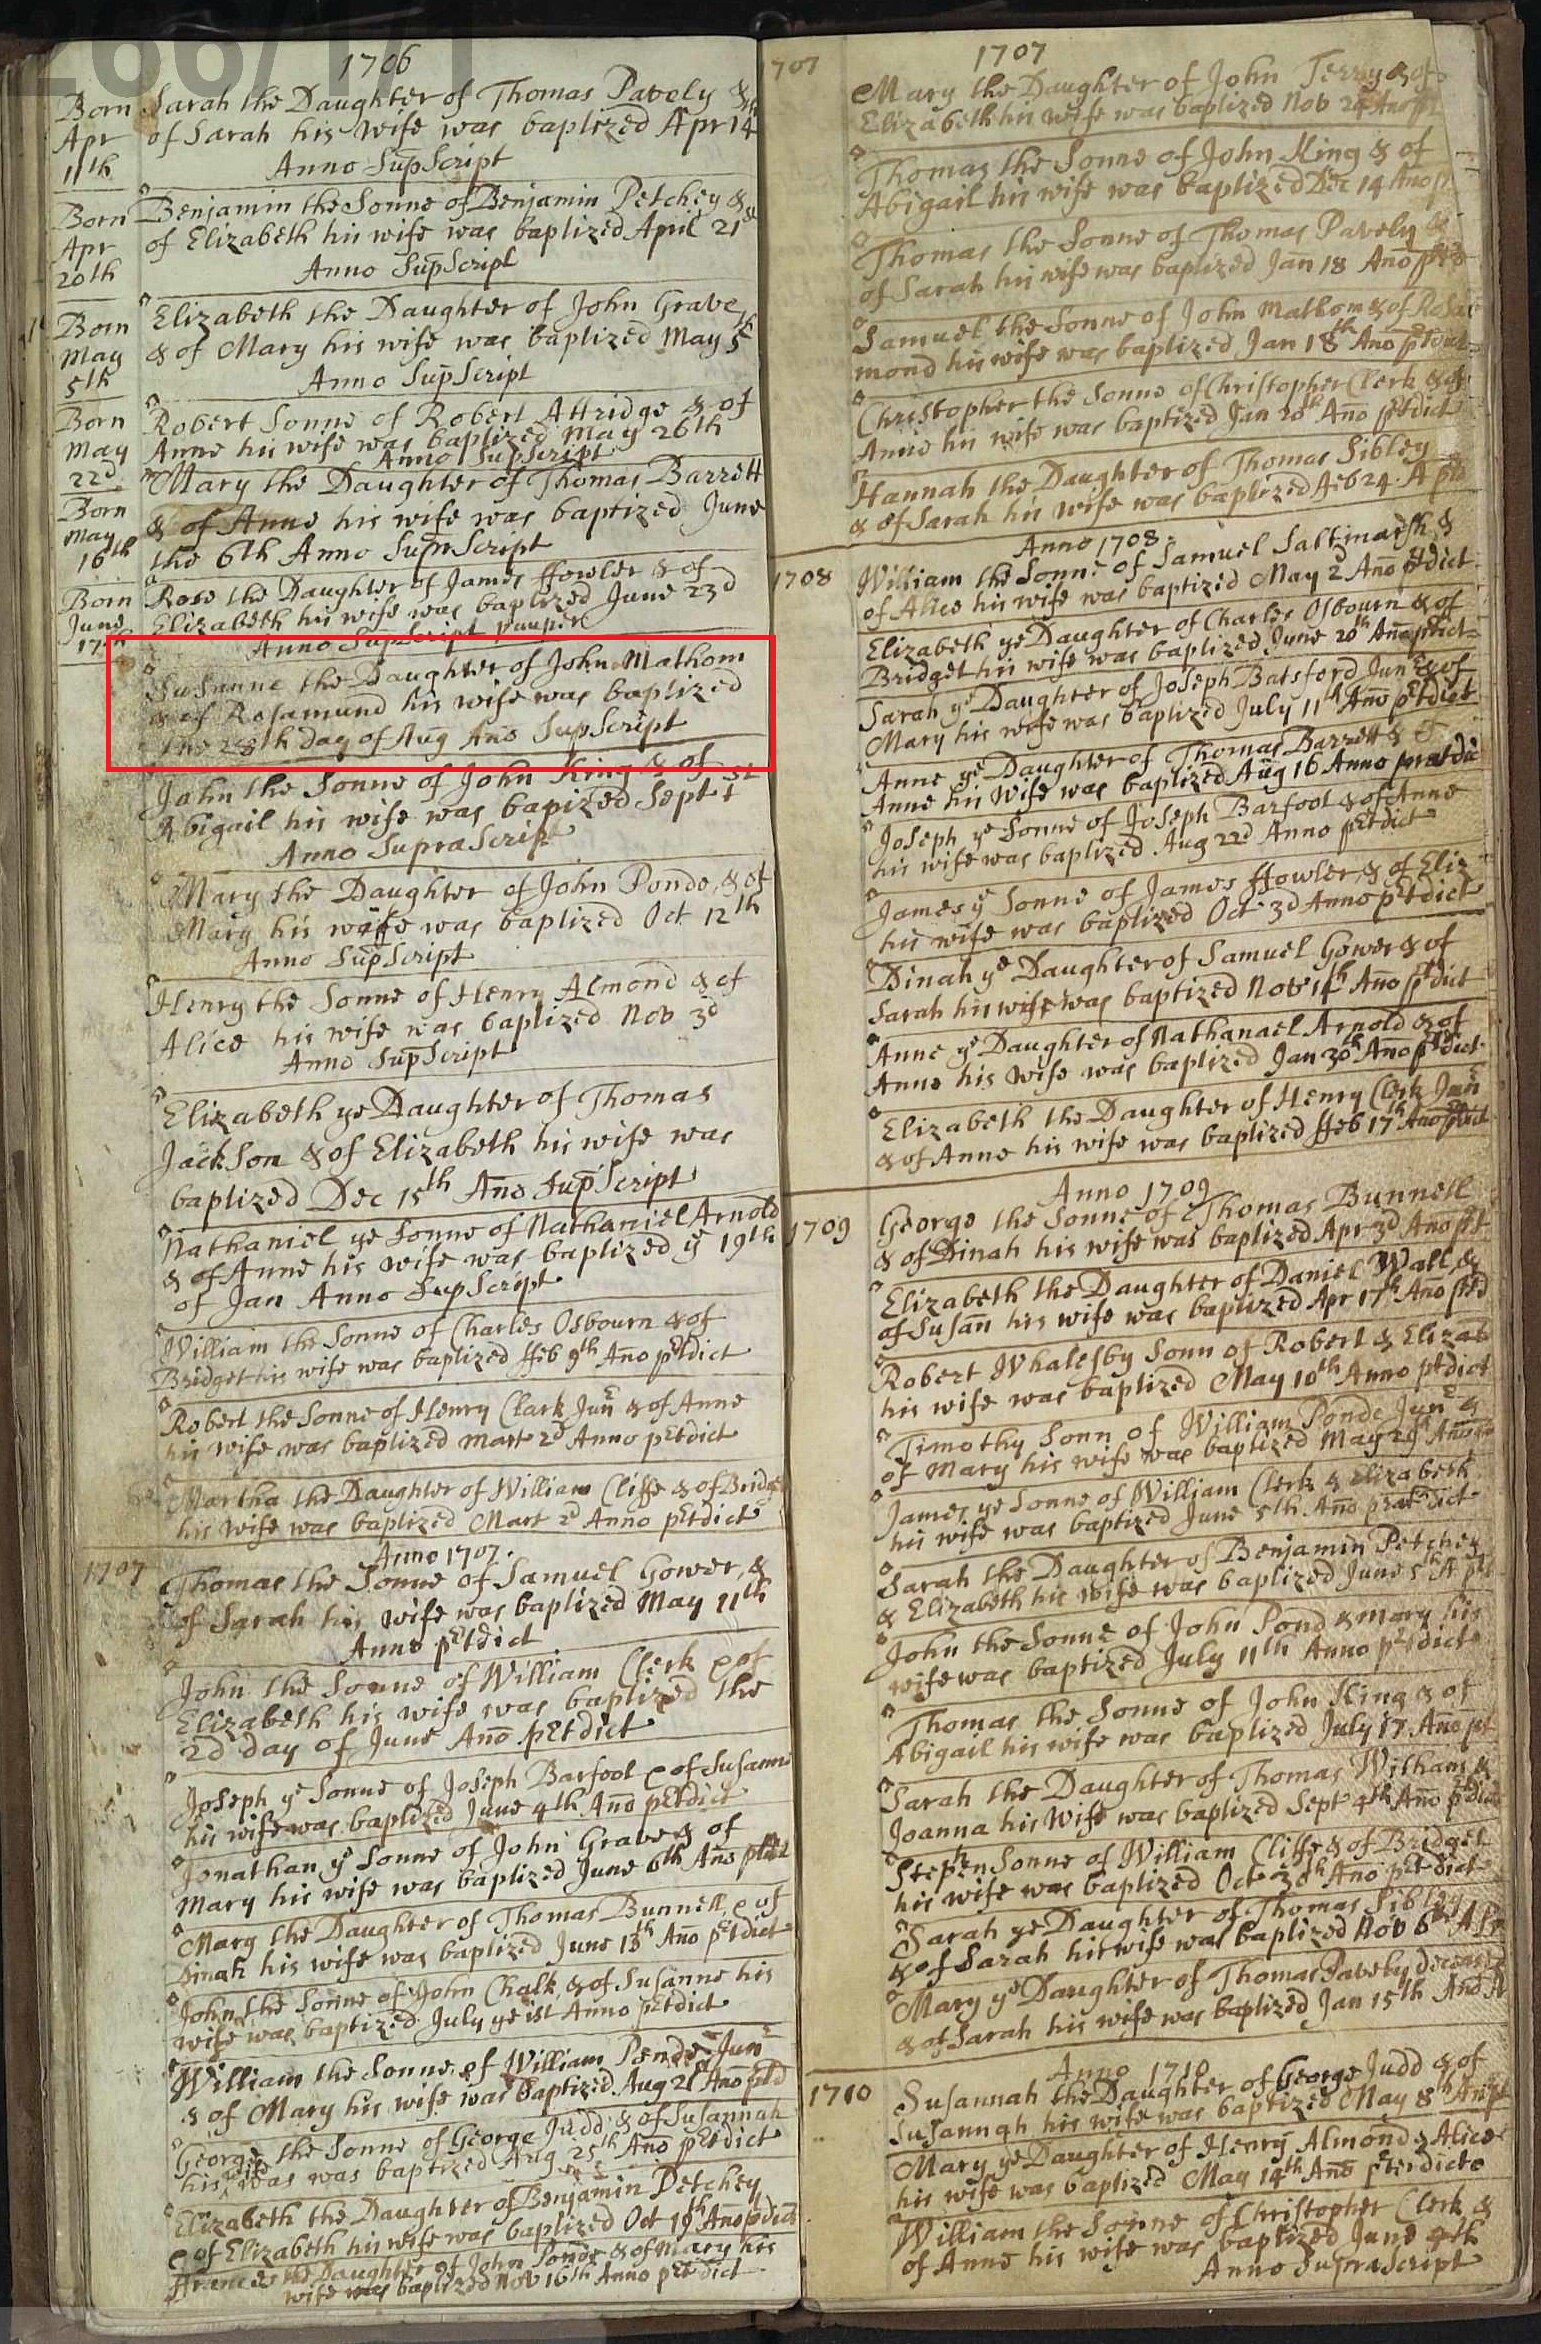 266/1/1
1706
Born
Apr
11th
Sarah the Daughter of Thomas Pavely &
of Sarah his wife was baptized Apr 14
Anno SupScript
Born
Apr
20th
Benjamin the Sonne of Benjamin Petchey &
of Elizabeth his wife was baptized April 21st
Anno SupScript
Born
May
5th
Elizabeth the Daughter of John Grave
& of Mary his wife was baptized May 5th
Anno SupScript
Born
May
22d
Robert Sonne of Robert Attridge & of
Anne his wife was baptized May 26th
Anno SupScript
Born
May
16th
Mary the Daughter of Thomas Barrett
& of Anne his wife was baptized June
the 6th Anno SuprScript
Born
June
17th
Rose the Daughter of James ffowler & of
Elizabeth his wife was baptized June 23d
Anno SupScript pauper
Susanne the Daughter of John Mathom
& of Rosamund his wife was baptized
the 28th day of Aug Ano SupScript
John the Sonne of John King & of
Abigail his wife was bapized Sept 1st
Anno SupraScript
Mary the Daughter of John Ponde, & of
Mary his wiffe was baptized Oct 12th
Anno SupScript
Henry the Sonne of Henry Almond & of
Alice his wife was baptized Nov 3d
Anno SupScript
Elizabeth ye Daughter of Thomas
JackSon & of Elizabeth his wife was
baptized Dec 15th Ano SupScript
Nathaniel ye Sonne of Nathaniel Arnold
& of Anne his wife was baptized ye 19th
of Jan Anno SupScript
William the Sonne of Charles Osbourn & of
Bridget his wife was baptized ffeb 9th Ano pRtdict
Robert the Sonne of Henry Clark Junr & of Anne
his Wife was baptized Mart 2d Anno pRtdict
Martha the Daughter of William Cliffe & of Bridget
his Wife was baptized Mart 2d Anno pRtdict
1707
Anno 1707.
Thomas the Sonne of Samuel Gower, &
of Sarah his wife was baptized May 11th
Anno pRtdict
John the Sonne of William Clerk & of
Elizabeth his wife was baptized the
2d day of June Ano pRtdict
Joseph ye Sonne of Joseph Barfoot & of Susanne
his wife was baptized June 4th Ano pRtdict
Jonathan ye Sonne of John Grave & of
Mary his wife was baptized June 6th Ano
Mary the Daughter of Thomas Bunnell, & of
Dinah his wife was baptized June 13th Ano pRtdict
John the Sonne of John Chalk & of Susanne his
wife was baptized July ye 1st Anno pRtdict
William the Sonne of William Ponde Junr
& of Mary his wife was baptized Aug 21st Ano
George the Sonne of George Judd & of Susannah
his wife was baptized Aug 25th Ano pRtdict
Elizabeth the Daughter of Benjamin Petchey
& of Elizabeth his wife was baptized Oct 19th Ano pdict
Frances the Daughter of John Ponde & of Mary his
wife was baptized Nov 16th Anno pRtdict
1707
1707
Mary the Daughter of John Terry & of
Elizabeth his wife was baptized Nov 24 Ano
Thomas the Sonne of John King & of
Abigail his wife was baptized Dec 14 Ano p
Thomas the Sonne of Thomas Pavely &
of Sarah his wife was baptized Jan 18 Ano
Samuel the Sonne of John Mathom & of Rosa=
mond his wife was baptized Jan 18th Ano
Christopher the Sonne of Christopher Clerk & of
Anne his wife was baptized Jan 20th Ano pRtdict
Hannah the Daughter of Thomas Sibley
& of Sarah his wife was baptized ffeb 24 A
1708
Anno 1708.
William the Sonne of Samuel Saltmarsh &
of Alice his wife was baptized May 2 Ano pRtdict
Elizabeth ye Daughter of Charles Osbourn & of
Bridget his wife was baptized June 20th Ano
Sarah ye Daughter of Joseph Batsford Junr & of
Mary his wife was baptized July 11th Ano pRtdict
Anne ye Daughter of Thomas Barrett &
Anne his Wife was baptized Aug 16 Anno
Joseph ye Sonne of Joseph Barfoot & of Anne
his wife was baptized Aug 22d Anno pRtdict
James ye Sonne of James ffowler, & of Eliz
his wife was baptized Oct 3d Anno pRtdict
Dinah ye Daughter of Samuel Gower & of
Sarah his wife was baptized Nov Ano
Anne ye Daughter of Nathanael Arnold & of
Anne his wife was baptized Jan 30th Ano
Elizabeth the Daughter of Henry Clerk Junr
& of Anne his wife was baptized ffeb 17th Ano
1709
Anno 1709
George the Sonne of Thomas Bunnell
& of Dinah his wife was baptized Apr 3d Ano
Elizabeth the Daughter of Daniel Wall, &
of Susan his wife was baptized Apr 17th Ano
Robert Whalesby Sonn of Robert & Elizab
his wife was baptized May 10th Anno pRtdict
Timothy Sonn of William Ponde Junr &
of Mary his wife was baptized May 29th Ano
James ye Sonne of William Clerk & Elizabeth
his wife was baptized June 5th Ano
Sarah the Daughter of Benjamin Petchey
& Elizabeth his wife was baptized June 5th A
John the Sonne of John Pond & Mary his
wife was baptized July 11th Anno pRtdict
Thomas the Sonne of John King & of
Abigail his wife was baptized July 17 Ano
Sarah the Daughter of Thomas Witham &
Joanna his Wife was baptized Sept 4th Ano
Stephen Sonne of William Cliffe & of Bridget
his wife was baptized Oct 30th Ano pRtdict
Sarah ye Daughter of Thomas Sibley
& of Sarah his wife was baptized Nov 6th A
Mary ye Daughter of Thomas Pavely deceas
& of Sarah his wife was baptized Jan 15th Ano
1710
Anno 1710
Susannah the Daughter of George Judd & of
Susannah his wife was baptized May 8th
Mary ye Daughter of Henry Almond & Alice
his wife was baptized May 14th Ano
William the Sonne of Christopher Clerk &
of Anne his wife was baptized June 4th
Anno SupraScript